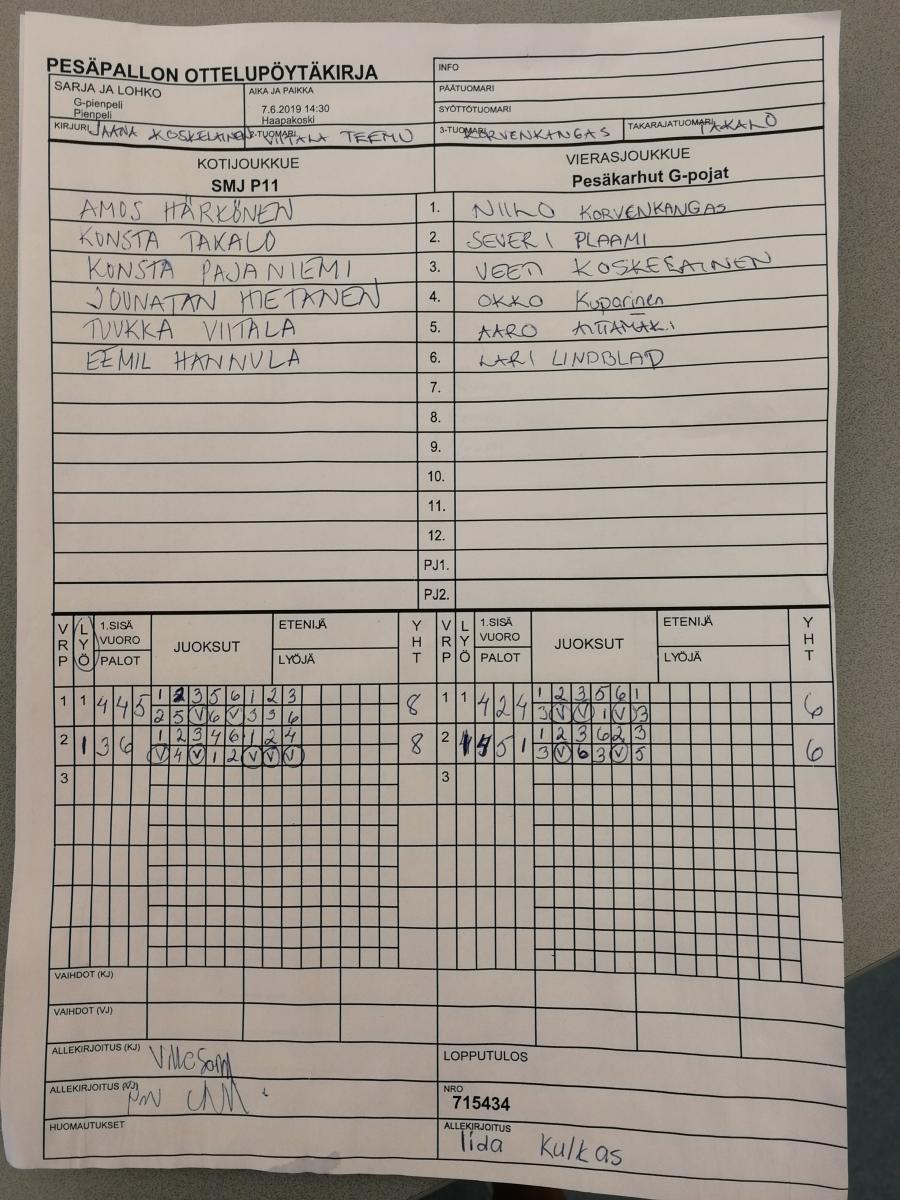 PESÄPALLON OTTELUPÖYTÄKIRJA
INFO
SARJA JA LOHKO
G-pienpeli
Pienpeli
AIKA JA PAIKKA
7.6.2019 14:30
Haapakoski
PÄÄTUOMARI
SYÖTTÖTUOMARI
KIRJURI JAANA KOSKELAINEN
2-TUOMARI VIITALA TEEMU
3-TUOMARI KORVENKANGAS
TAKARAJATUOMARI TAKALO
KOTIJOUKKUE
SMJ P11
VIERASJOUKKUE
Pesäkarhut G-pojat
AMOS HÄRKÖNEN 1. NIILO KORVENKANGAS
KONSTA TAKALO 2. SEVERI PLAAMI
KONSTA PAJANIEMI 3. VEETI KOSKELAINEN
JOUNATAN HIETANEN 4. OKKO Kuparinen
TUUKKA VIITALA 5. AARO
EEMIL HANNULA 6. LARI LINDBLAD
7.
8.
9.
10.
11.
12.
PJ1.
PJ2.
VRP LYÖ 1.SISÄ VUORO PALOT JUOKSUT ETENIJÄ LYÖJÄ YHT VRP LYÖ 1.SISÄ VUORO PALOT JUOKSUT ETENIJÄ LYÖJÄ YHT
1 1 4 4 5 1 2 3 5 6 1 2 3 8 1 1 4 2 4 1 2 3 5 6 1 6
2 5 V 6 V 3 3 6 3 V V 1 V 3
2 1 3 6 1 2 3 4 6 1 2 4 8 2 4 5 1 1 2 3 6 2 3 6
V 4 V 1 2 V V V 3 V 6 3 V 5
3 3
VAIHDOT (KJ)
VAIHDOT (VJ)
ALLEKIRJOITUS (KJ)
LOPPUTULOS
ALLEKIRJOITUS (VJ)
NRO
715434
HUOMAUTUKSET
ALLEKIRJOITUS
Iida Kulkas